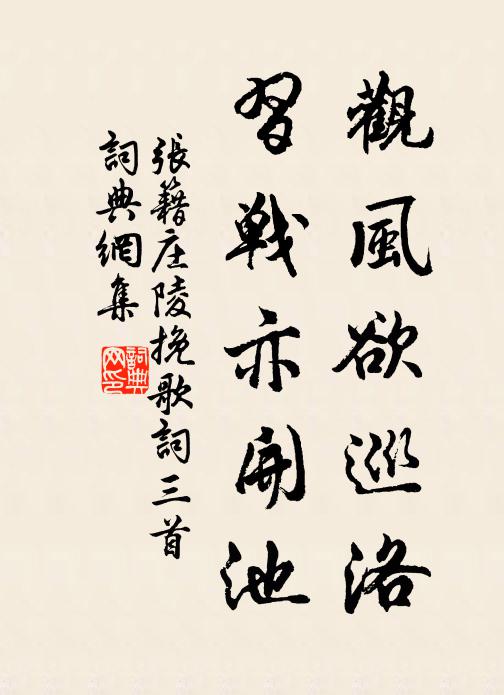 觀風欲巡洛
習戰亦開池
張籍庄陵挽歌詞三首
詞典網集
詞典网印